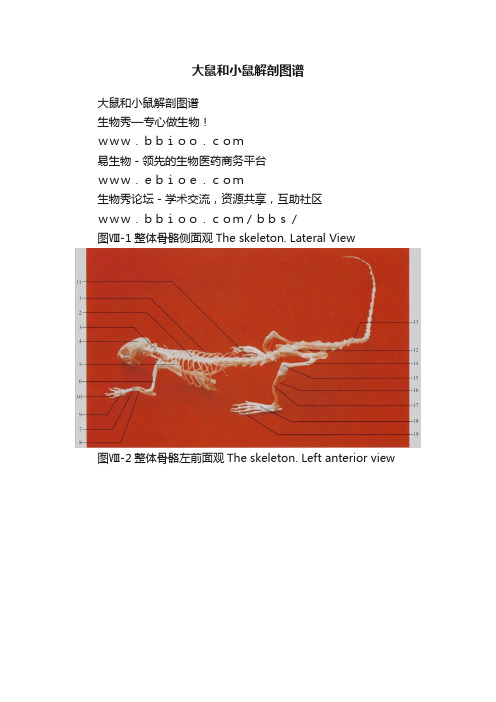 大鼠和小鼠解剖图谱
大鼠和小鼠解剖图谱
生物秀—专心做生物！
ｗｗｗ．ｂｂｉｏｏ．ｃｏｍ
易生物－领先的生物医药商务平台
ｗｗｗ．ｅｂｉｏｅ．ｃｏｍ
生物秀论坛－学术交流，资源共享，互助社区
ｗｗｗ．ｂｂｉｏｏ．ｃｏｍ／ｂｂｓ／
图Ⅷ-1整体骨骼侧面观The skeleton. Lateral View
11
1
2
3
4
5
6
10
9
7
8
13
12
14
15
16
17
18
19
图Ⅷ-2整体骨骼左前面观The skeleton. Left anterior view